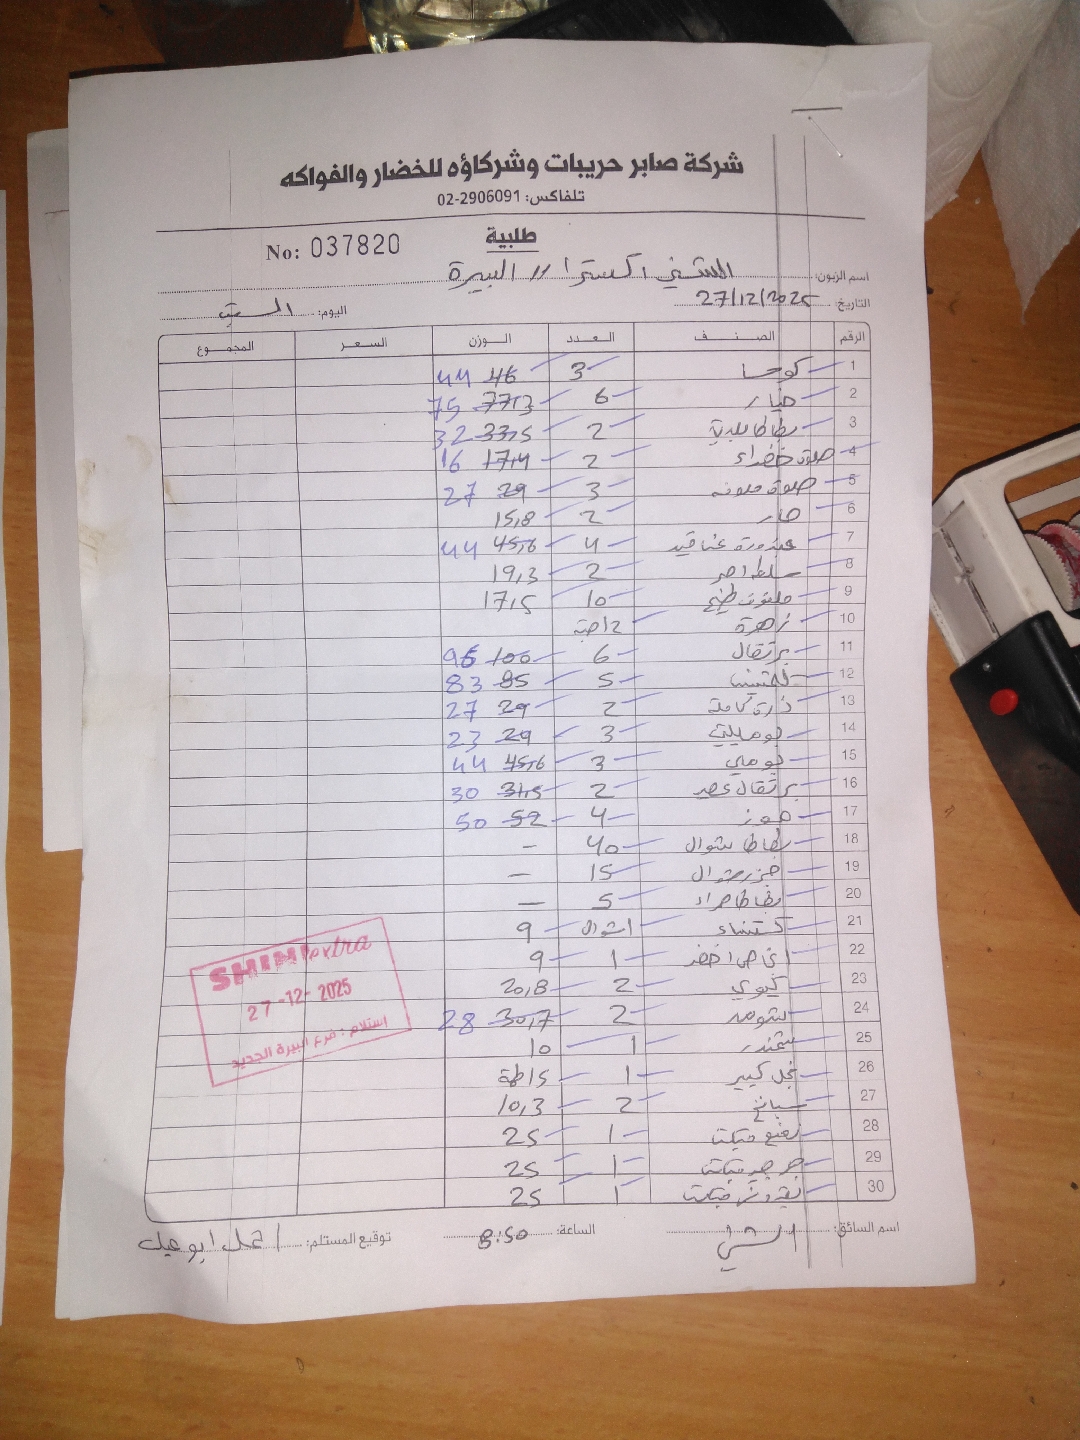 شركة صابر حريبات وشركاؤه للخضار والفواكه
تلفاكس: 02-2906091
طلبية
No: 037820
اسم الزبون: الشني اكسترا // البيرة
التاريخ: 27/12/2025
اليوم: السبت
الرقم الصنف العدد الوزن السعر المجموع
1 كوسا 3 46 44
2 خيار 6 77,3 75
3 بطاطا بلدية 2 33,5 32
4 حلوة خضراء 2 17,4 16
5 حلوة ملونه 3 29 27
6 حار 2 15,8
7 بندورة عناقيد 4 45,6 44
8 2 19,3
9 ملفوف طبخ 10 17,5
10 زهرة
11 برتقال 6 100 95
12 كلمنتينا 5 85 83
13 ذرة كاملة 2 29 27
14 بوميلي 3 29 23
15 بوملي 3 45,6 44
16 برتقال عصر 2 31,5 30
17 موز 4 52 50
18 بطاطا شوال 40 -
19 جزر شوال 15 -
20 بطاطا حمراء 5 -
21 كستناء اشوال 9
22 اجاص اخضر 1 9
23 كيوي 2 20,8
24 شومر 2 30,7 28
25 شمندر 1 10
26 فجل كبير 1
27 سبانخ 2 10,3
28 نعنع فبكت 1 25
29 جرجير فبكت 1 25
30 بقدونس فبكت 1 25
SHINI extra
27-12-2025
استلام: فرع البيرة الجديد
اسم السائق:
الساعة: 8:50
توقيع المستلم: